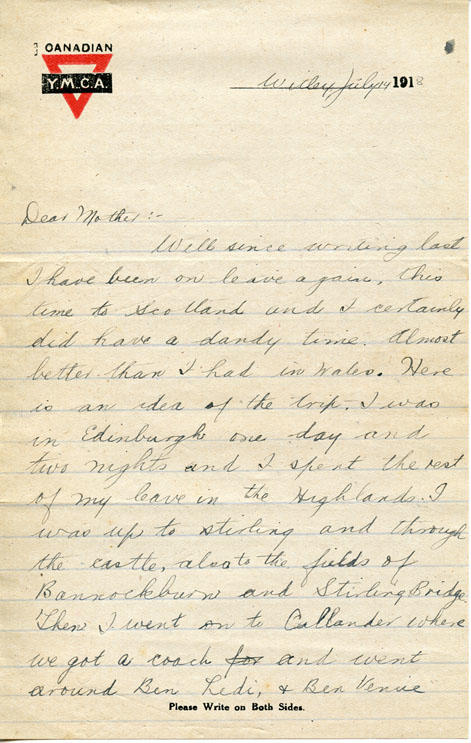 CANADIAN
Y.M.C.A.
Witley July 14 1918
Dear Mother:-
Well since writing last
I have been on leave again, this
time to Scotland and I certainly
did have a dandy time. Almost
better than I had in Wales. Here
is an idea of the trip. I was
in Edinburgh one day and
two nights and I spent the rest
of my leave in the Highlands. I
was up to Stirling and through
the castle, also to the fields of
Bannockburn and Stirling Bridge
Then I went on to Callander where
we got a coach for and went
around Ben Ledi, & Ben Venue
Please Write on Both Sides.